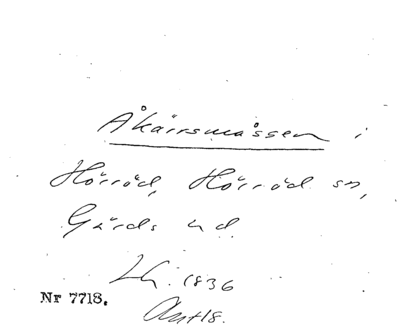 Åkärrsmossen i
Hörröd, Hörröd sn,
Gärds hd.
1836
Nr 7718.